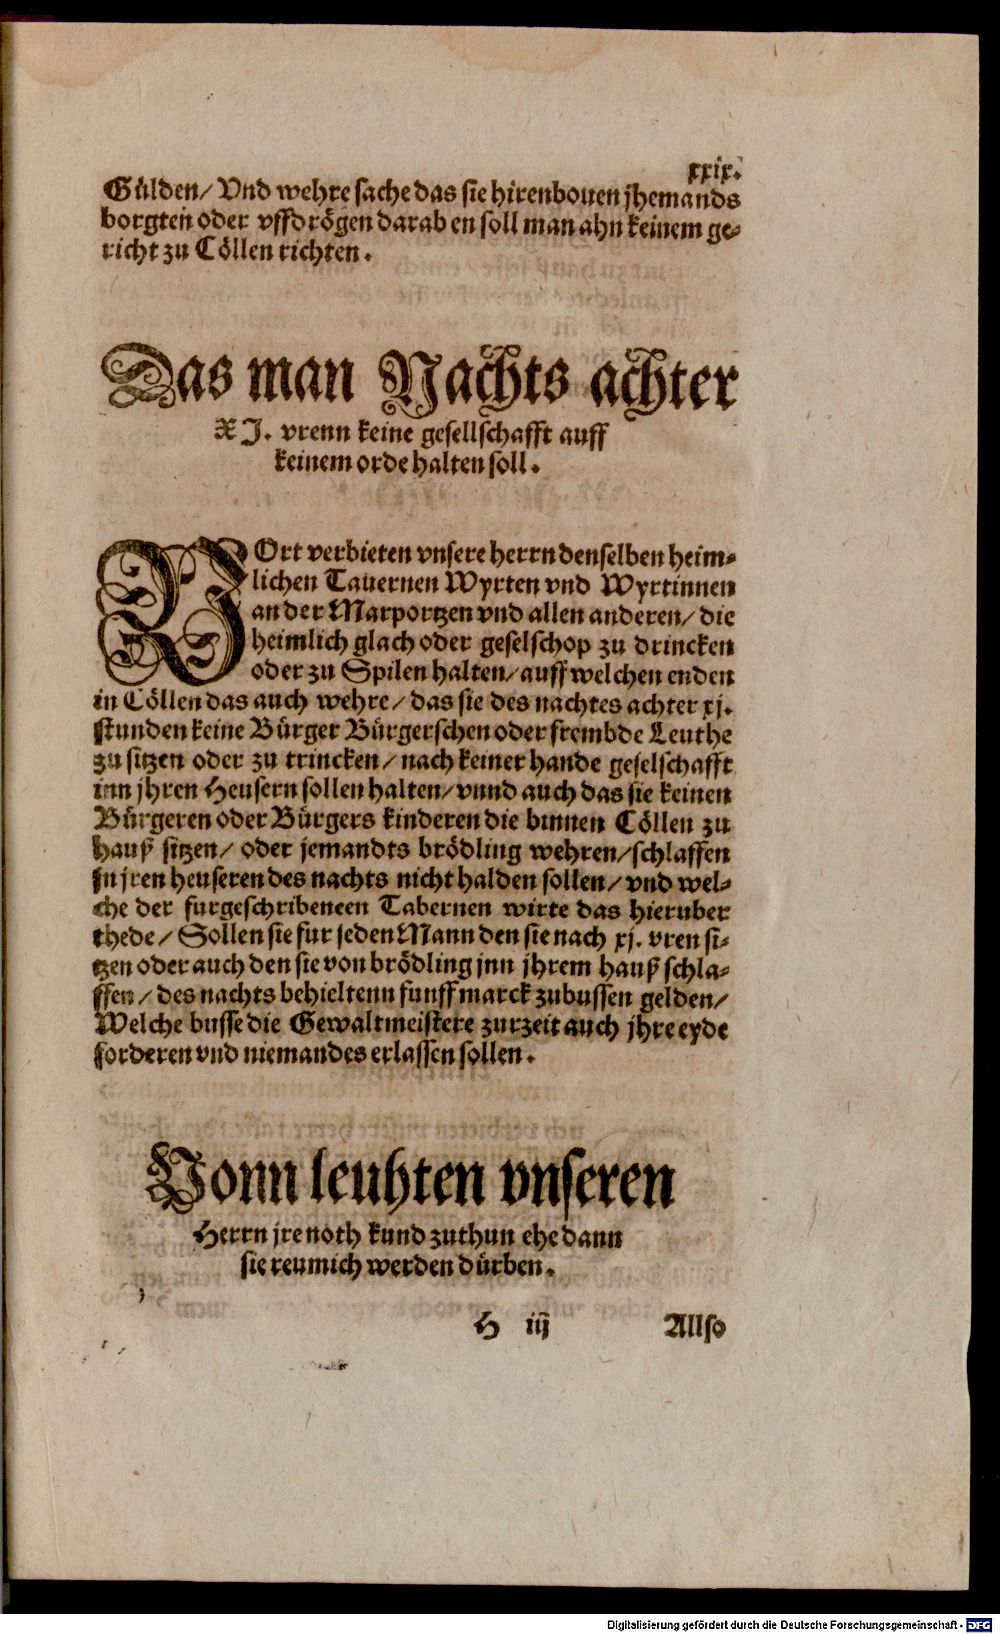 xxix.
Gülden/ Vnd wehre sache das sie hirenbouen jhemands
borgten oder vffdrögen darab en soll man ahn keinem ge-
richt zu Cöllen richten.
Das man Nachts achter
XI. vrenn keine gesellschafft auff
keinem orde halten soll.
VOrt verbieten vnsere herrn denselben heim-
lichen Tauernen Wyrten vnd Wyrtinnen
an der Marportzen vnd allen anderen/ die
heimlich glach oder geselschop zu drincken
oder zu Spilen halten/ auff welchen enden
in Cöllen das auch wehre/ das sie des nachtes achter xj.
stunden keine Bürger Bürgerschen oder frembde Leuthe
zu sitzen oder zu trincken/ nach keiner hande geselschafft
inn jhren Heusern sollen halten/ vnnd auch das sie keinen
Bürgeren oder Bürgers kinderen die binnen Cöllen zu
hauß sitzen/ oder jemandts brödling wehren/ schlaffen
in jren heuseren des nachts nicht halden sollen/ vnd wel-
che der furgeschribeneen Tabernen wirte das hieruber
thede/ Sollen sie fur jeden Mann den sie nach xj. vren si-
tzen oder auch den sie von brödling jnn jhrem hauß schla-
ffen/ des nachts behieltenn funff marck zubussen gelden/
Welche busse die Gewaltmeistere zurzeit auch jhre eyde
forderen vnd niemandes erlassen sollen.
Vonn leuhten vnseren
Herrn jre noth kund zuthun ehe dann
sie reumich werden dürben.
H iij Allso
Digitalisierung gefördert durch die Deutsche Forschungsgemeinschaft - DFG